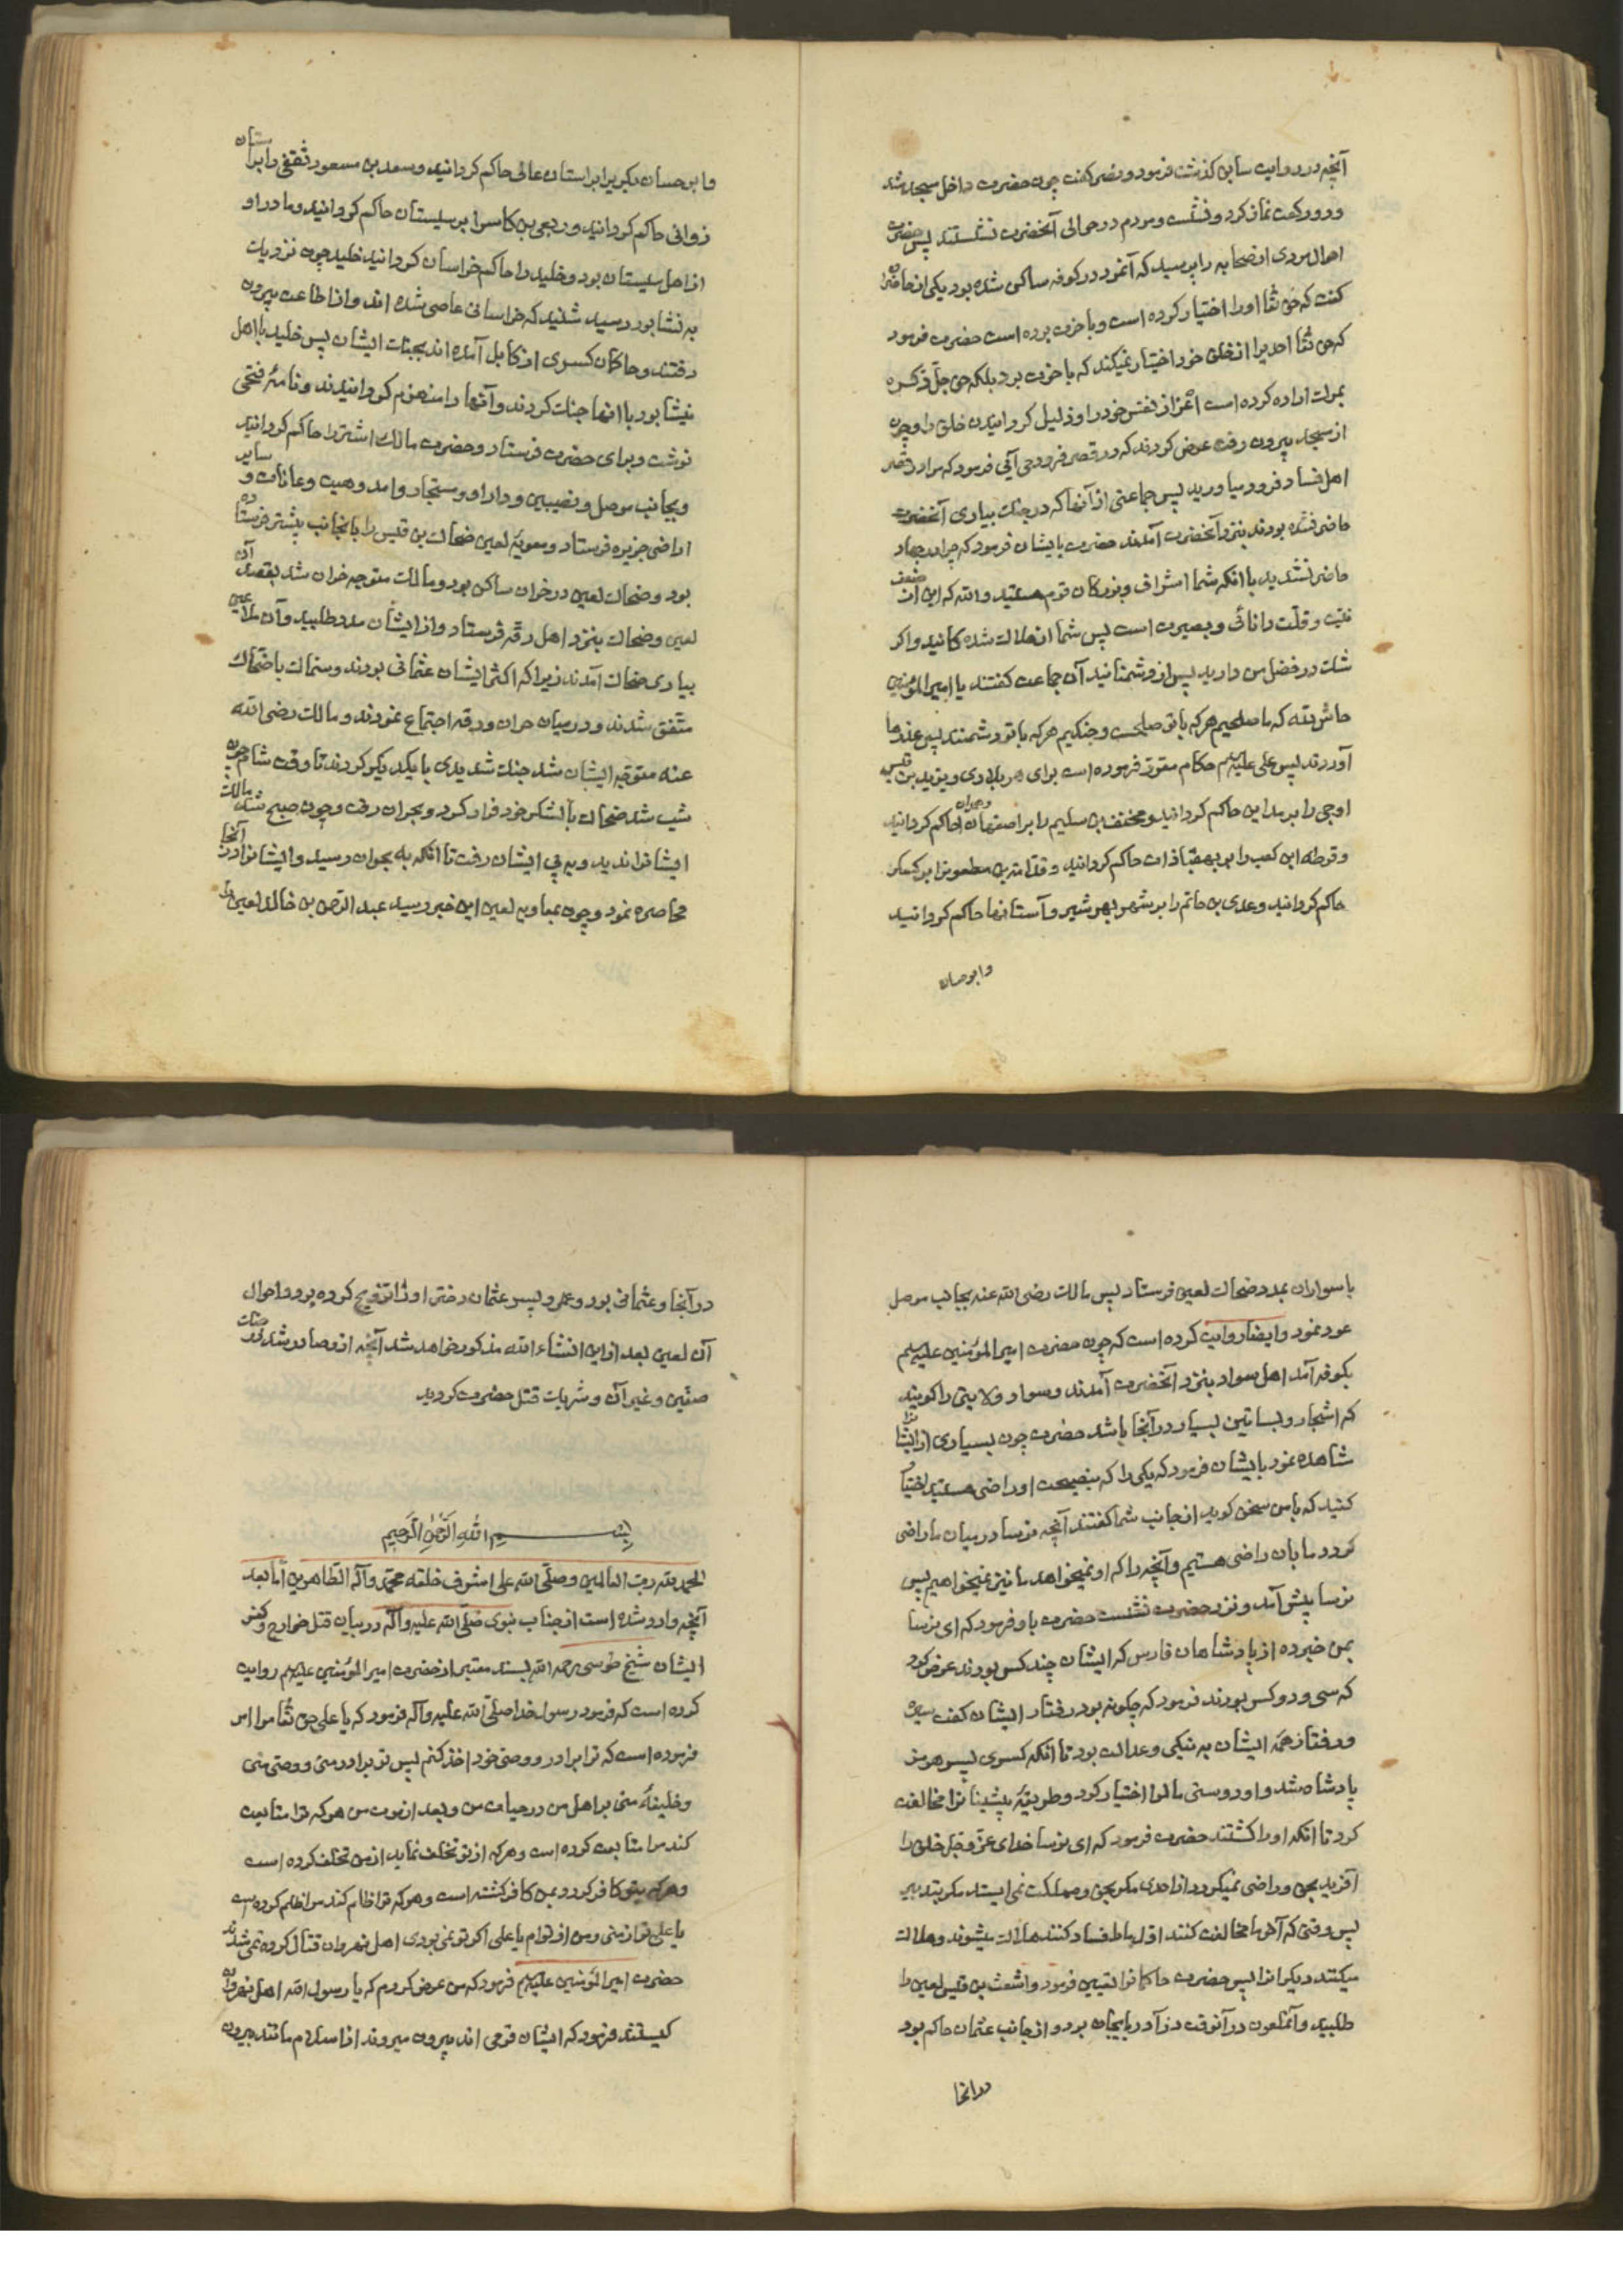 آنچه در روایت سابق گذشت فرمود و نصر گفت چون حضرت داخل مسجد شد
و دو رکعت نماز کرد و نشست و مردم در حوالی آنحضرت نشستند پس حضرت
احوال مردی از صحابه را پرسید که آنمرد در کوفه ساکن شده بود یکی از حاضران
گفت که حق تعا او را اختیار کرده است و باخرت برده است حضرت فرمود
که حق تعا احدیرا از خلق خود اختیار نمیکند که باخرت برد بلکه حق جل ذکره
بموت اراده کرده است اعزاز نفس خود را و ذلیل کردانیدن خلق را و چون
از مسجد بیرون رفت عرض کردند که در قصر فرود می آئی فرمود که مرا در قصر
اهل فساد فرود میاورید پس جماعتی از آنها که در جنک بیاری آنحضرت
حاضر نشده بودند بنزد آنحضرت آمدند حضرت بایشان فرمود که چرا در جهاد
حاضر نشدید با انکه شما اشراف و بزرکان قوم هستید والله که این از ضعف
نیت و قلت دانائی و بصیرت است پس شما از هلاک شده کانید و اکر
شک در فضل من دارید پس از دشمنانید آن جماعت کفتند یا امیر المؤمنین
حاش لله که ما صلحیم هر که با تو صلحست و جنکیم هر که با تو دشمنند پس عذرها
آوردند پس علی علیه السلم حکام مقرر فرموده است برای هر بلادی و یزید بن قیس
اوجی را بر مداین حاکم کردانید و مخنف بن سلیم را بر اصفهان و همدان حاکم کردانید
و قرطه ابن کعب را بر بهقباذات حاکم کردانید و قدامة بن مظعون را بر کسکر
حاکم کردانید و عدی بن حاتم را بر شهر بهرشیر و آستانها حاکم کردانید
وابو حسان
وابو حسان بکری را بر استان عالی حاکم کردانید و سعد بن مسعود ثقفی را بر استان
زوابی حاکم کردانید و ربعی بن کاس را بر سیستان حاکم کردانید و مادر او
از اهل سیستان بود و خلید را حاکم خراسان کردانید خلید چون نزدیک
به نشابور رسید شنید که خراسانی عاصی شده اند و از اطاعت بیرون
رفتند و حاکمان کسری از کابل آمده اند بجنک ایشان پس خلید با اهل
نیشابور با آنها جنک کردند و آنها را منهزم کردانیدند و نامهٔ فتحی
نوشت و برای حضرت فرستاد و حضرت مالک اشتر را حاکم کردانید
و بجانب موصل و نصیبین و دارا و سنجار و آمد و هیت و عانات و سایر
اراضی جزیره فرستاد و معویهٔ لعین ضحاک بن قیس را بانجانب پیشتر فرستاده
بود و ضحاک لعین در حران ساکن بود و مالک متوجه حران شد بقصد آن
لعین و ضحاک بنزد اهل رقه فرستاد و از ایشان مدد طلبید و آن ملاعین
بیاری ضحاک آمدند زیرا که اکثر ایشان عثمانی بودند و سماک با ضحاک
متفق شدند و در میان حران و رقه اجتماع نمودند و مالک رضی الله
عنه متوجه ایشان شد جنک شدیدی با یکدیکر کردند تا وقت شام چون
شب شد ضحاک با لشکر خود فرار کرد و بحران رفت و چون صبح شد مالک
ایشانرا ندید و پی ایشان رفت تا انکه به بحران رسید و ایشانرا در آنجا
محاصره نمود و چون بمعاویهٔ لعین این خبر رسید عبد الرحمن بن خالد لعین را
با سواران بمدد ضحاک لعین فرستاد پس مالک رضی الله عنه بجانب موصل
عود نمود و ایضا روایت کرده است که چون حضرت امیر المؤمنین علیه السلم
بکوفه آمد اهل سواد بنزد آنحضرت آمدند و سواد ولایتی را کویند
که اشجار و بساتین بسیار در آنجا باشد حضرت چون بسیاری از ایشانرا
مشاهده نمود بایشان فرمود که یکی را که بنصیحت او راضی هستید اختیار
کنید که با من سخن کوید از جانب شما کفتند آنچه نرسا در میان ما راضی
کردد ما بان راضی هستیم و آنچه را که او نمیخواهد ما نیز نمیخواهیم پس
نرسا پیش آمد و نزد حضرت نشست حضرت باو فرمود که ای نرسا
بمن خبر ده از پادشاهان فارس که ایشان چند کس بودند عرض کرد
که سی و دو کس بودند فرمود که چکونه بود رفتار ایشان کفت سیرت
و رفتار همهٔ ایشان به نیکی و عدالت بود تا انکه کسری پسر هرمز
پادشاه شد و او دوستی مال را اختیار کرد و طریقهٔ پیشینیانرا مخالفت
کرد تا انکه او را کشتند حضرت فرمود که ای نرسا خدای عز و جل خلق را
آفرید بحق و راضی نمیکردد از احدی مکر بحق و مملکت نمی ایستد مکر بتدبیر
پس وقتی که آخر ما مخالفت کنند اول ما را فساد کنند هلاک میشوند و هلاک
میکنند دیکرانرا پس حضرت حاکمانرا تعیین فرمود و اشعث بن قیس لعین را
طلبید و آنملعون در آنوقت در آذربایجان بود و از جانب عثمان حاکم بود
در آنجا
در آنجا و عثمانی بود و عمرو پسر عثمان دختر او را تزویج کرده بود و احوال
آن لعین بعد از این انشاء الله مذکور خواهد شد آنچه از او صادر شد در جنک
صفین و غیر آن و شریک قتل حضرت کردید
بسم الله الرحمن الرحیم
الحمد لله رب العالمین وصلی الله علی اشرف خلقه محمد وآله الطاهرین اما بعد
آنچه وارد شده است از جناب نبوی صلی الله علیه وآله در بیان قتل خوارج و کفر
ایشان شیخ طوسی رحمه الله بسند معتبر از حضرت امیر المؤمنین علیه السلم روایت
کرده است که فرمود رسول خدا صلی الله علیه وآله فرمود که یا علی حق تعا مرا امر
فرموده است که ترا برادر و وصی خود اخذ کنم پس تو برادر منی و وصی منی
و خلیفهٔ منی بر اهل من در حیات من و بعد از موت من هر که ترا متابعت
کند مرا متابعت کرده است و هر که از تو تخلف نماید از من تخلف کرده است
و هر که بتو کافر کردد بمن کافر کشته است و هر که ترا ظلم کند مرا ظلم کرده است
یا علی تو از منی و من از توام یا علی اکر تو نمی بودی اهل نهروان قتال کرده نمی شدند
حضرت امیر المؤمنین علیه السلم فرمود که من عرض کردم که یا رسول الله اهل نهروان
کیستند فرمود که ایشان قومی اند بیرون میروند از اسلام مانند بیرون